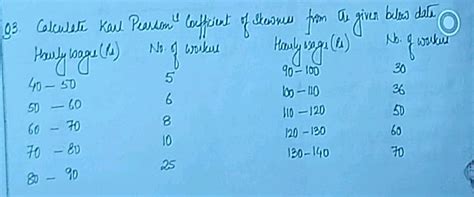 Q3. Calculate Karl Pearson's Coefficient of Skewness from the given below data
Hourly wages (Rs) No. of workers Hourly wages (Rs) No. of workers
40 – 50 5 90 – 100 30
50 – 60 6 100 – 110 36
60 – 70 8 110 – 120 50
70 – 80 10 120 – 130 60
80 – 90 25 130 – 140 70